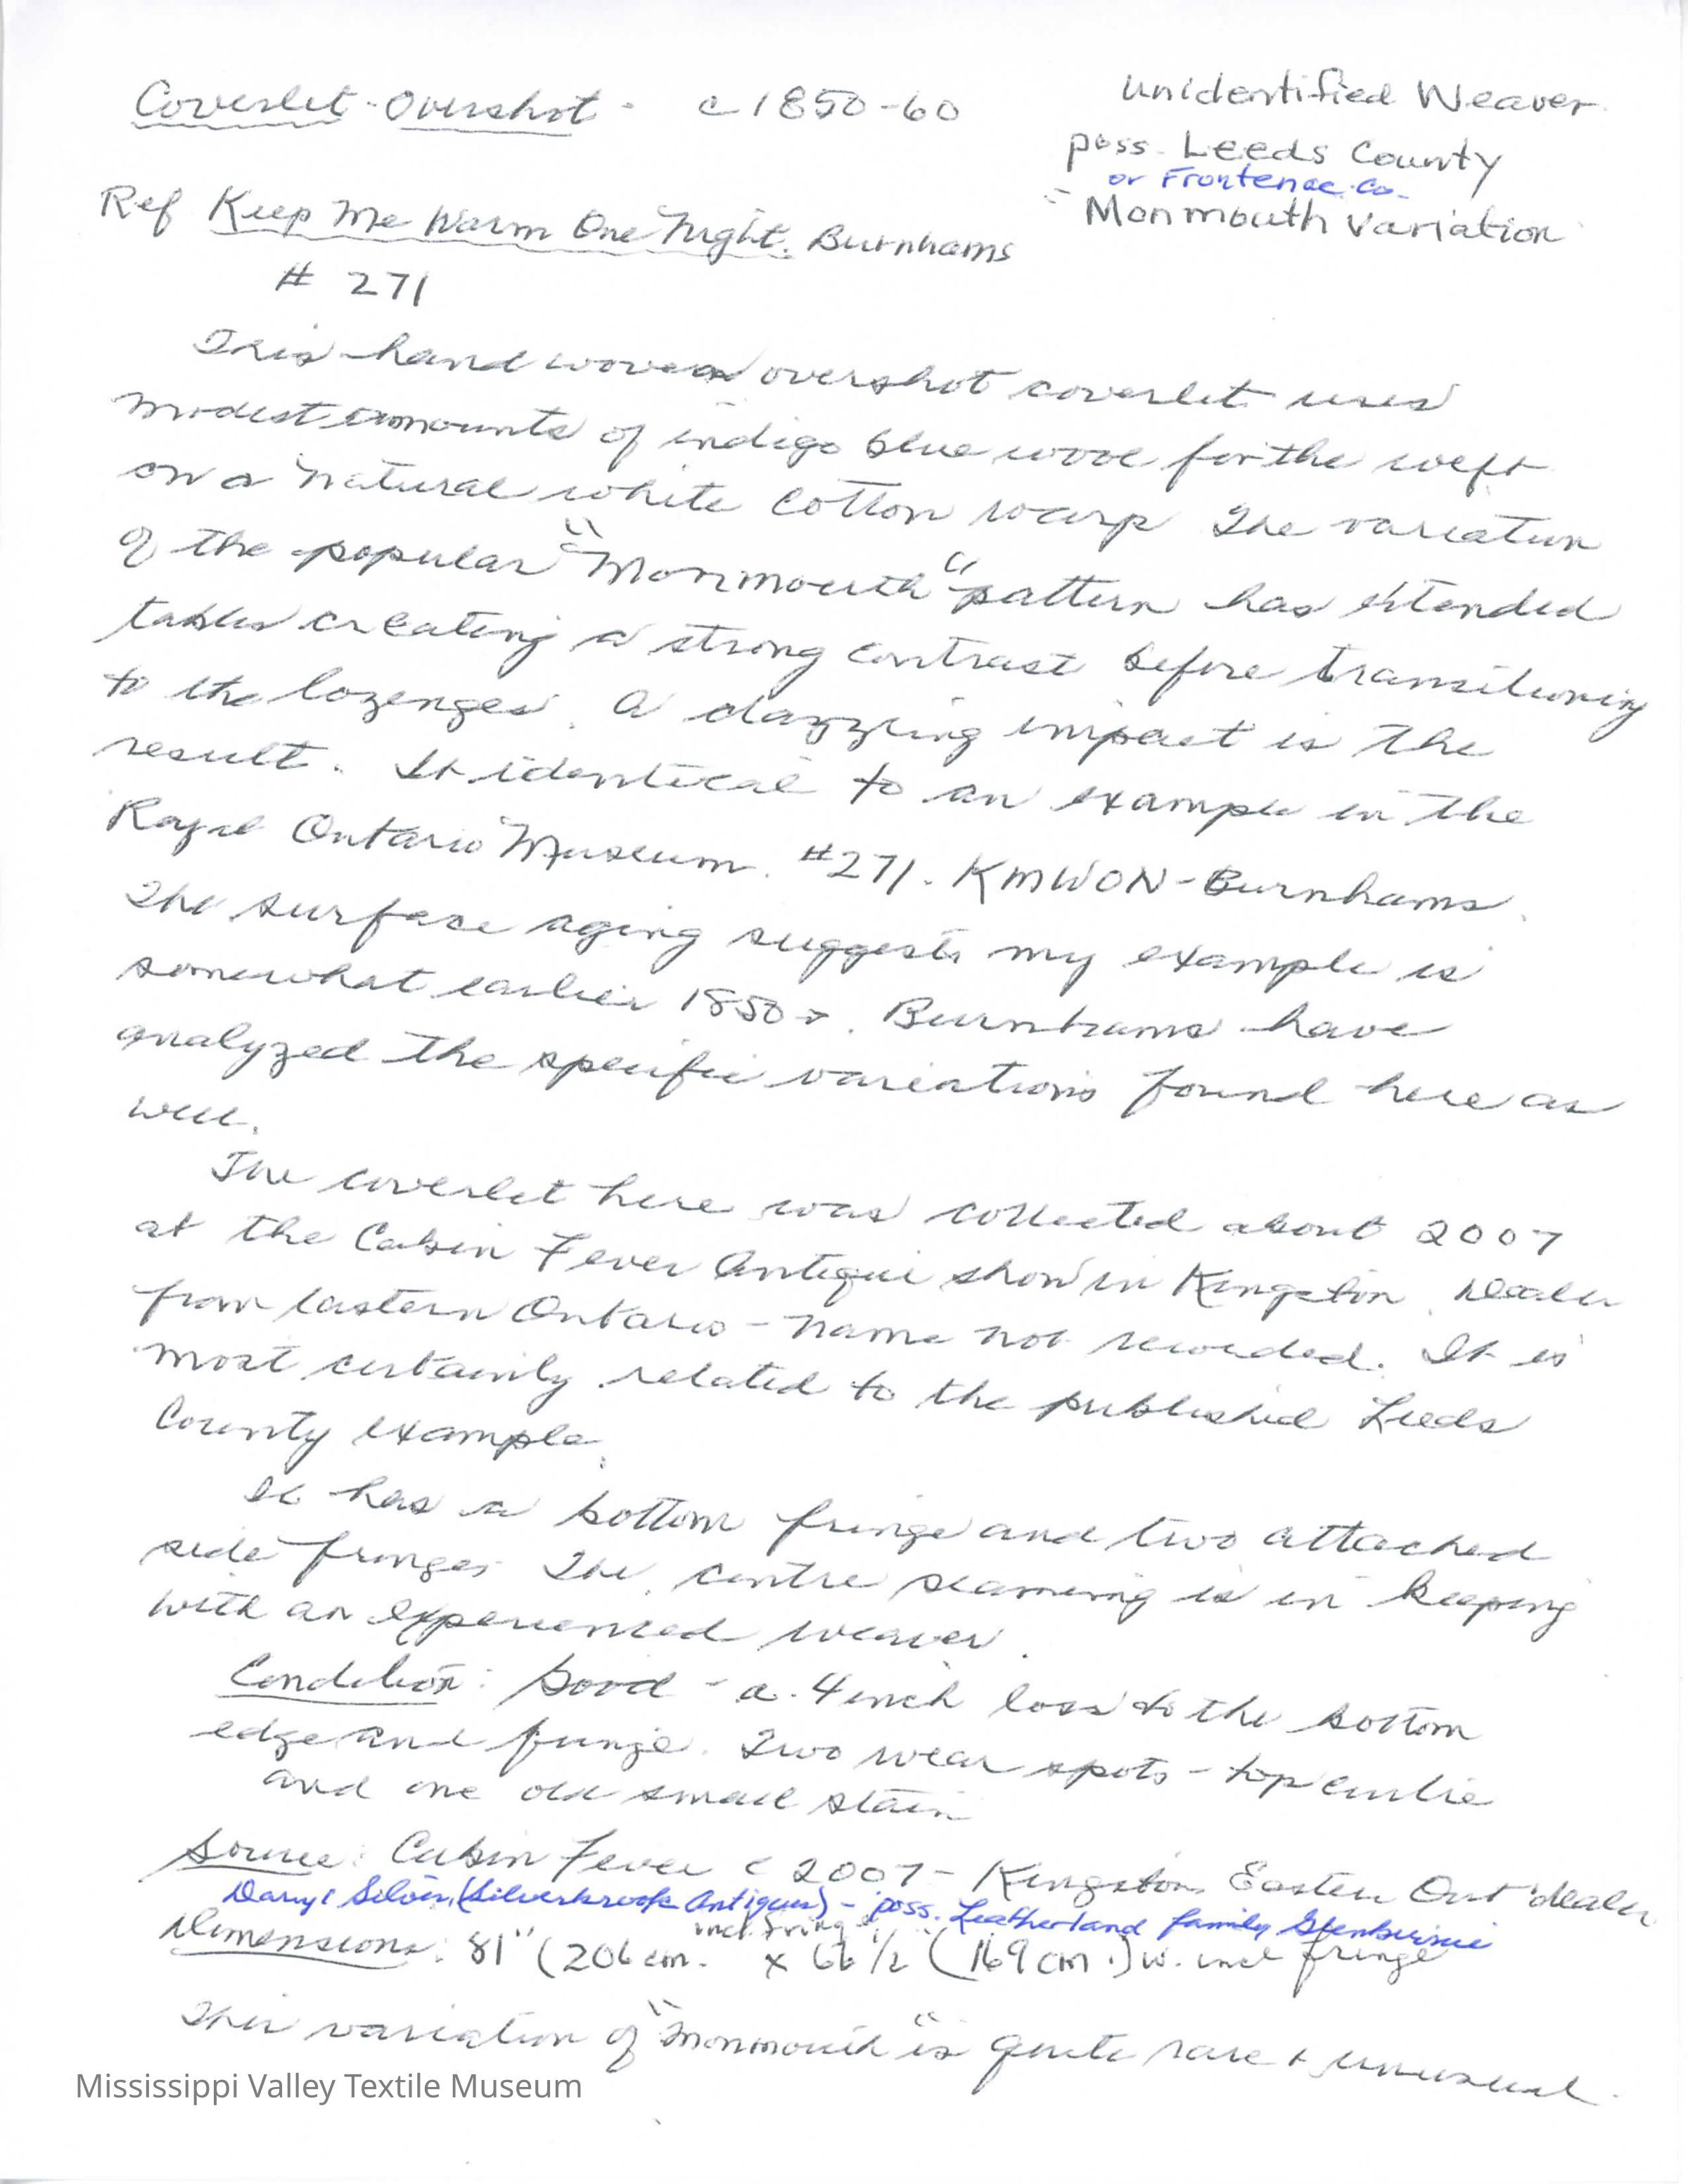 Coverlet - Overshot - c 1850-60
unidentified Weaver
poss. Leeds County
or Frontenac Co.
- Monmouth Variation
Ref Keep Me Warm One Night. Burnhams
# 271
This hand woven overshot coverlet uses
modest amounts of indigo blue wool for the weft
on a natural white cotton warp The variation
of the popular "Monmouth" pattern has extended
tables creating a strong contrast before transitioning
to the lozenges. A dazzling impact is the
result. It identical to an example in the
Royal Ontario Museum. #271. KMWON - Burnhams.
The surface aging suggests my example is
somewhat earlier 1850s. Burnhams have
analyzed the specific variations found here as
well.
The coverlet here was collected about 2007
at the Cabin Fever Antique show in Kingston. Dealer
from Eastern Ontario - name not recorded. It is
most certainly related to the published Leeds
County example.
It has a bottom fringe and two attached
side fringes The centre seaming is in keeping
with an experienced weaver.
Condition: Good - a 4 inch loss to the bottom
edge and fringe. Two wear spots - top
and one old small stain
Source: Cabin Fever c 2007 - Kingston, Eastern Ont dealer
Darryl Silver (Silverbrook Antiques) - poss. Leatherland family Glenburnie
Dimensions: 81" (206 cm. incl. fringe x 66 1/2" (169 cm.) w. incl fringe
This variation of "Monmouth" is quite rare + unusual.
Mississippi Valley Textile Museum